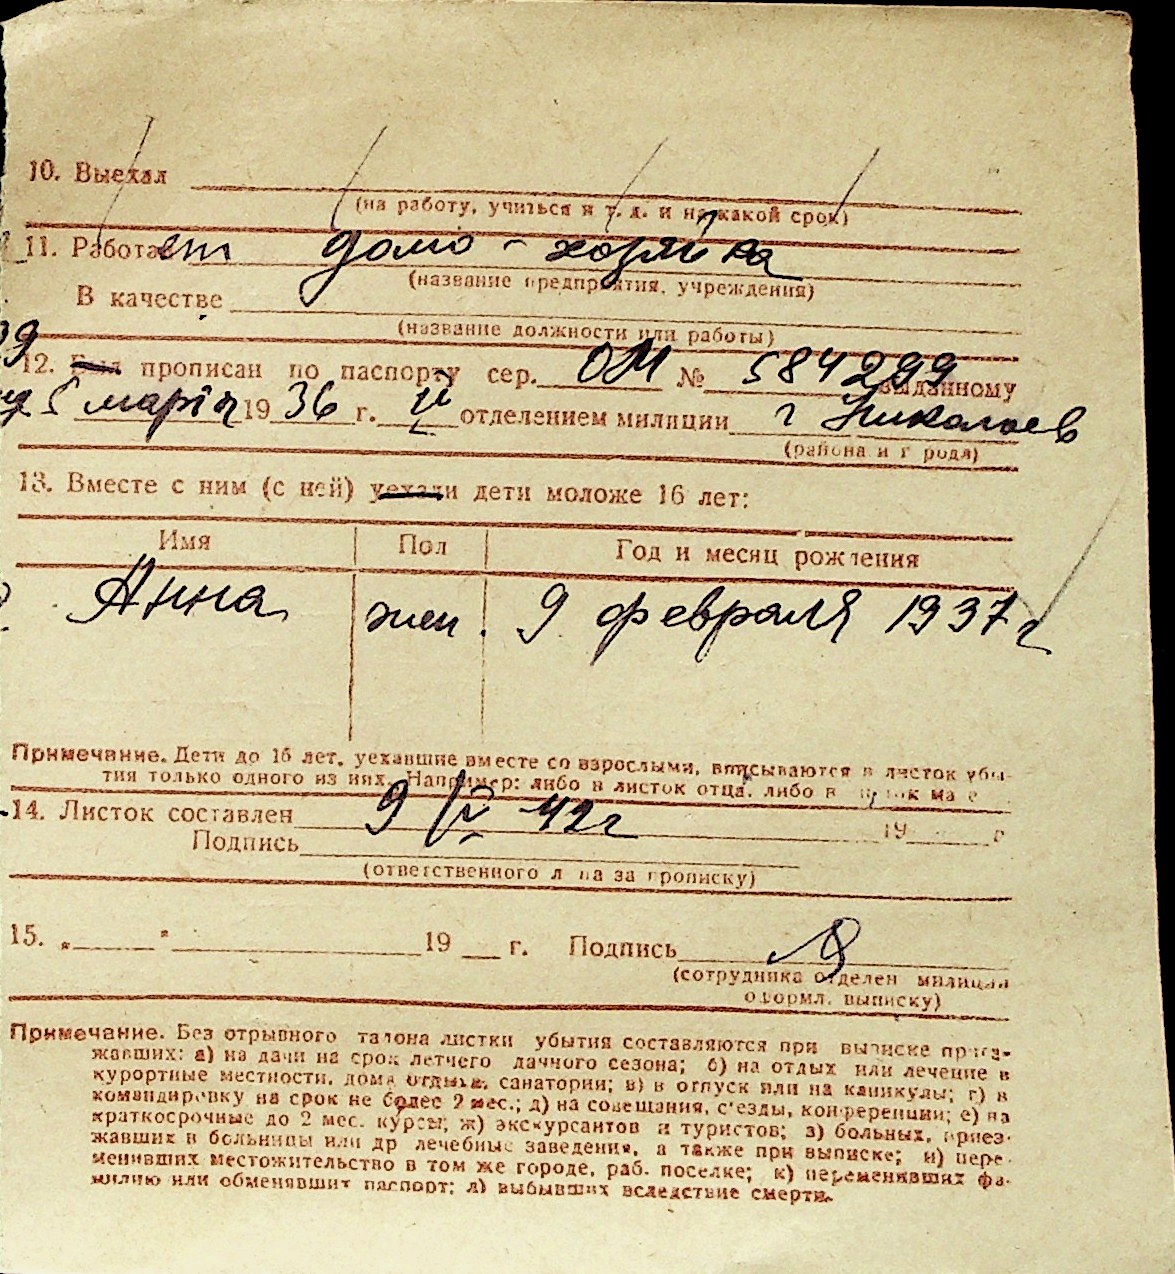 10. Выехал
(на работу, учиться и т. д. и на какой срок)
11. Работает домо-хозяйка
(название предприятия, учреждения)
В качестве
(название должности или работы)
12. Был прописан по паспорту сер. ОМ № 584299 выданному
5 марта 1936 г. отделением милиции г Николаев
(района и города)
13. Вместе с ним (с ней) уехали дети моложе 16 лет:
Имя Пол Год и месяц рождения
Анна жен. 9 февраля 1937 г
Примечание. Дети до 16 лет, уехавшие вместе со взрослыми, вписываются в листок убы-
тия только одного из них. Например: либо в листок отца, либо в
14. Листок составлен 9/IV 42 г 19 г
Подпись
(ответственного лица за прописку)
15. "___" 19 г. Подпись
(сотрудника отделен милиции
оформл. выписку)
Примечание. Без отрывного талона листки убытия составляются при выписке приез-
жавших: а) на дачи на срок летнего дачного сезона; б) на отдых или лечение в
курортные местности, дома отдыха, санатории; в) в отпуск или на каникулы; г) в
командировку на срок не более 2 мес.; д) на совещания, с'езды, конференции; е) на
краткосрочные до 2 мес. курсы; ж) экскурсантов и туристов; з) больных, приез-
жавших в больницы или др лечебные заведения, а также при выписке; и) пере-
менивших местожительство в том же городе, раб. поселке; к) переменивших фа-
милию или обменявших паспорт; л) выбывших вследствие смерти.